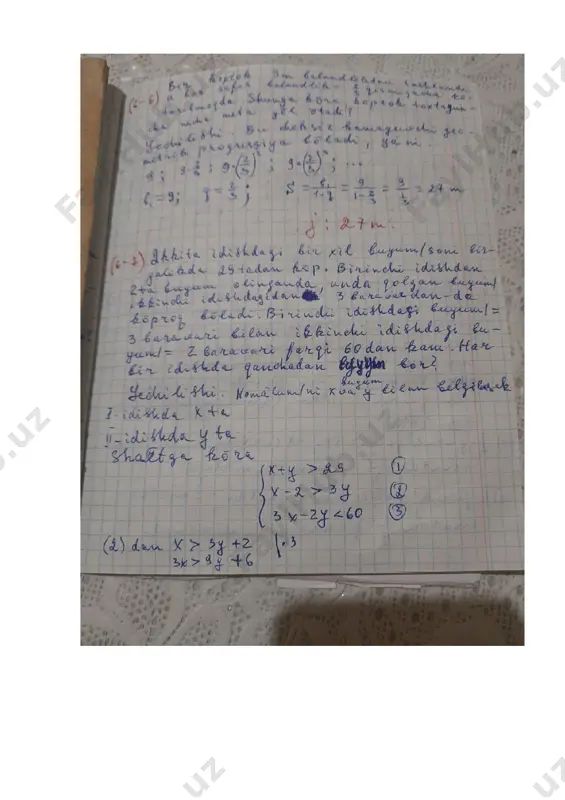 (6-6) Bir koptok 9m balandlikdan tashlandi
har safar balandlik= 2/3 qismigacha ko-
tarilmoqda. Shunga ko'ra, koptok toxtagun-
cha necha metr yo'l otadi?
Yechilishi. Bu cheksiz kamayuvchi geo-
metrik progressiya boladi, yani.
9; 9·2/3; 9·(2/3)²; 9·(2/3)³; ...
b₁=9; q=2/3; S = b₁/1-q = 9/1-2/3 = 9/1/3 = 27 m
j: 27 m.
Ikkita idishdagi bir xil buyum/soni bir-
galikda 29 tadan ko'p. Birinchi idishdan
2 ta buyum olinganda, unda qolgan buyum/
ikkinchi idishdagidan 3 baravardan-da
ko'proq boladi. Birinchi idishdagi buyum/=
3 baravari bilan ikkinchi idishdagi bu-
yum/= 2 baravari farqi 60 dan kam. Har
bir idishda qanchadan buyum bor?
Yechilishi. Nomalum/ni x va y bilan belgilasak
I-idishda x ta
II-idishda y ta
Shartga ko'ra
x+y > 29 ①
x-2 > 3y ②
3x-2y < 60 ③
(2) dan x > 3y+2 |·3
3x > 9y+6
FayllHub.uz